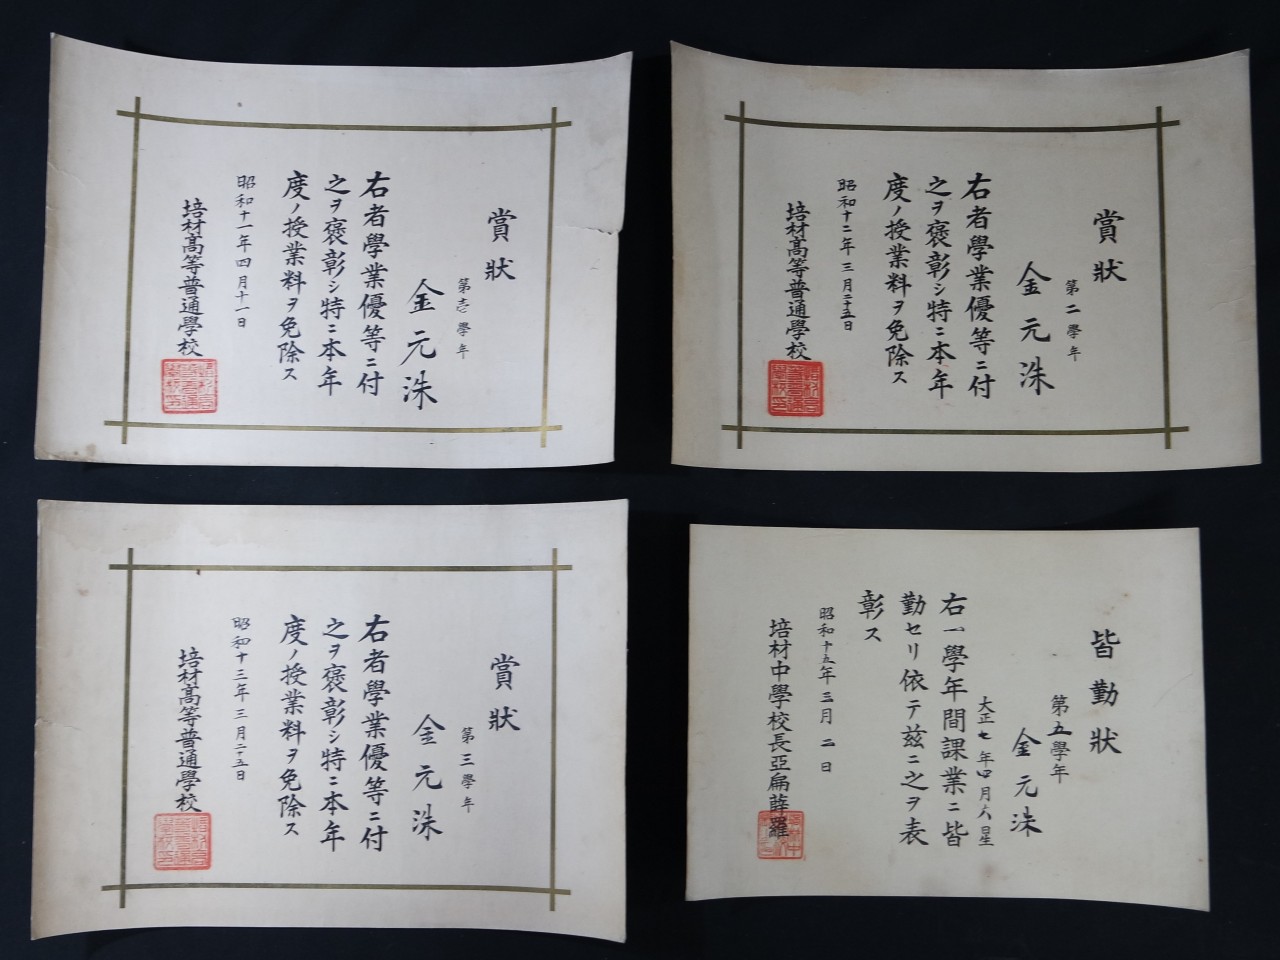 賞狀
第壱學年
金元洙
右者學業優等ニ付
之ヲ褒彰シ特ニ本年
度ノ授業料ヲ免除ス
昭和十一年四月十一日
培材高等普通學校
賞狀
第二學年
金元洙
右者學業優等ニ付
之ヲ褒彰シ特ニ本年
度ノ授業料ヲ免除ス
昭和十二年三月二十五日
培材高等普通學校
賞狀
第三學年
金元洙
右者學業優等ニ付
之ヲ褒彰シ特ニ本年
度ノ授業料ヲ免除ス
昭和十三年三月二十五日
培材高等普通學校
皆勤狀
第五學年
金元洙
大正七年四月六日生
右一學年間課業ニ皆
勤セリ依テ茲ニ之ヲ表
彰ス
昭和十五年三月二日
培材中學校長亞扁薛羅